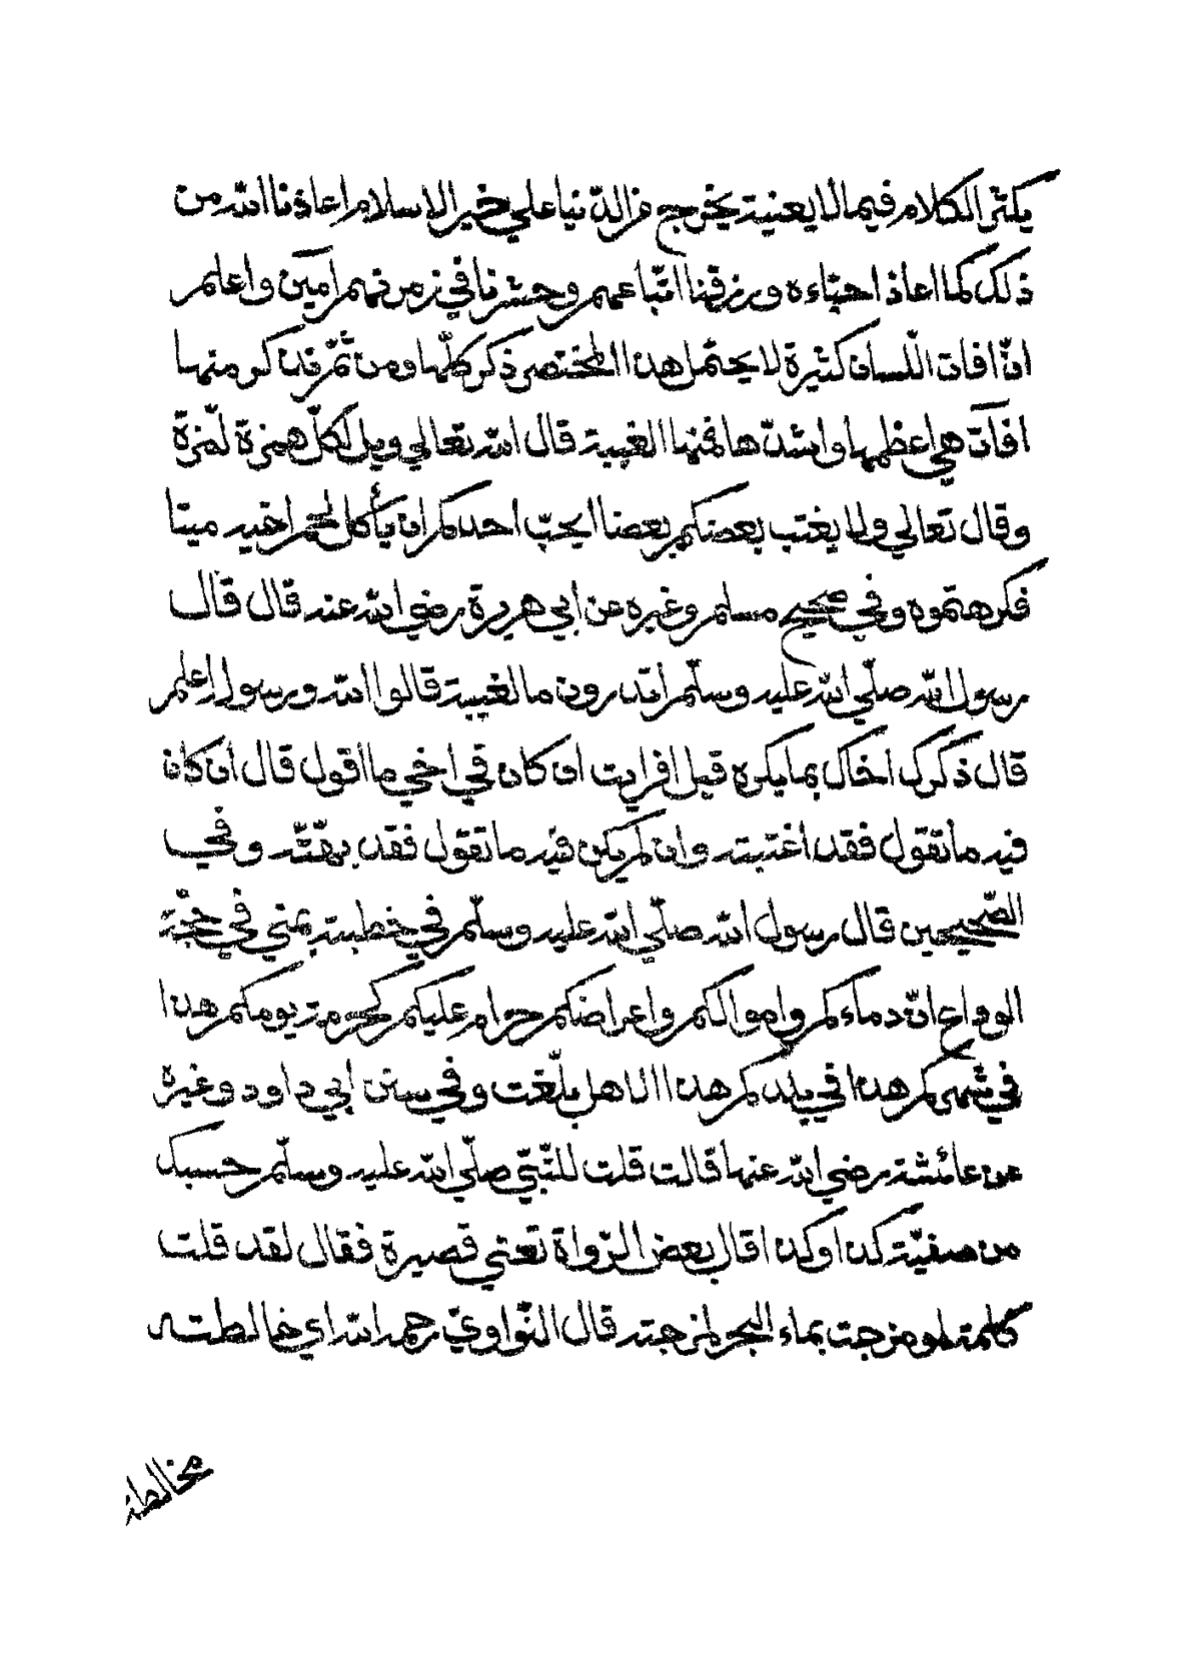 يكثر الكلام فيما لا يعنيه يخرج من الدّنيا علي خير الاسلام اعاذنا الله من
ذلك كما اعاذ احبّاءه ورزقنا اتّباعهم وحشرنا في زمرتهم آمين واعلم
انّ افات اللّسان كثيرة لا يحتمل هذا المختصر ذكر كلّها ومن ثمّ فذا كر منها
افآت هي اعظمها واشدّها فمنها الغيبة قال الله تعالي ويل لكلّ همزة لمّزة
وقال تعالي ولا يغتب بعضكم بعضا ايحبّ احدكم ان يأكل لحم اخيه ميتا
فكرهتموه وفي صحيح مسلم وغيره عن ابي هريرة رضي الله عنه قال قال
رسول الله صلّي الله عليه وسلّم اتدرون ما الغيبة قالوا الله ورسوله اعلم
قال ذكرك اخاك بما يكره قيل افرايت ان كان في اخي ما اقول قال ان كان
فيه ما تقول فقد اغتبته وان لم يكن فيه ما تقول فقد بهتّه وفي
الصّحيحين قال رسول الله صلّي الله عليه وسلّم في خطبته بمني في حجّة
الوداع انّ دماءكم واموالكم واعراضكم حرام عليكم كحرمة يومكم هذا
في شهركم هذا في بلدكم هذا الا هل بلّغت وفي سنن ابي داود وغيرة
عن عائشة رضي الله عنها قالت قلت للنّبيّ صلّي الله عليه وسلّم حسبك
من صفيّة كذا وكذا قال بعض الرّواة تعني قصيرة فقال لقد قلت
كلمة لو مزجت بماء البحر لمزجته قال النّواويّ رحمه الله اي خالطته
مخالطة